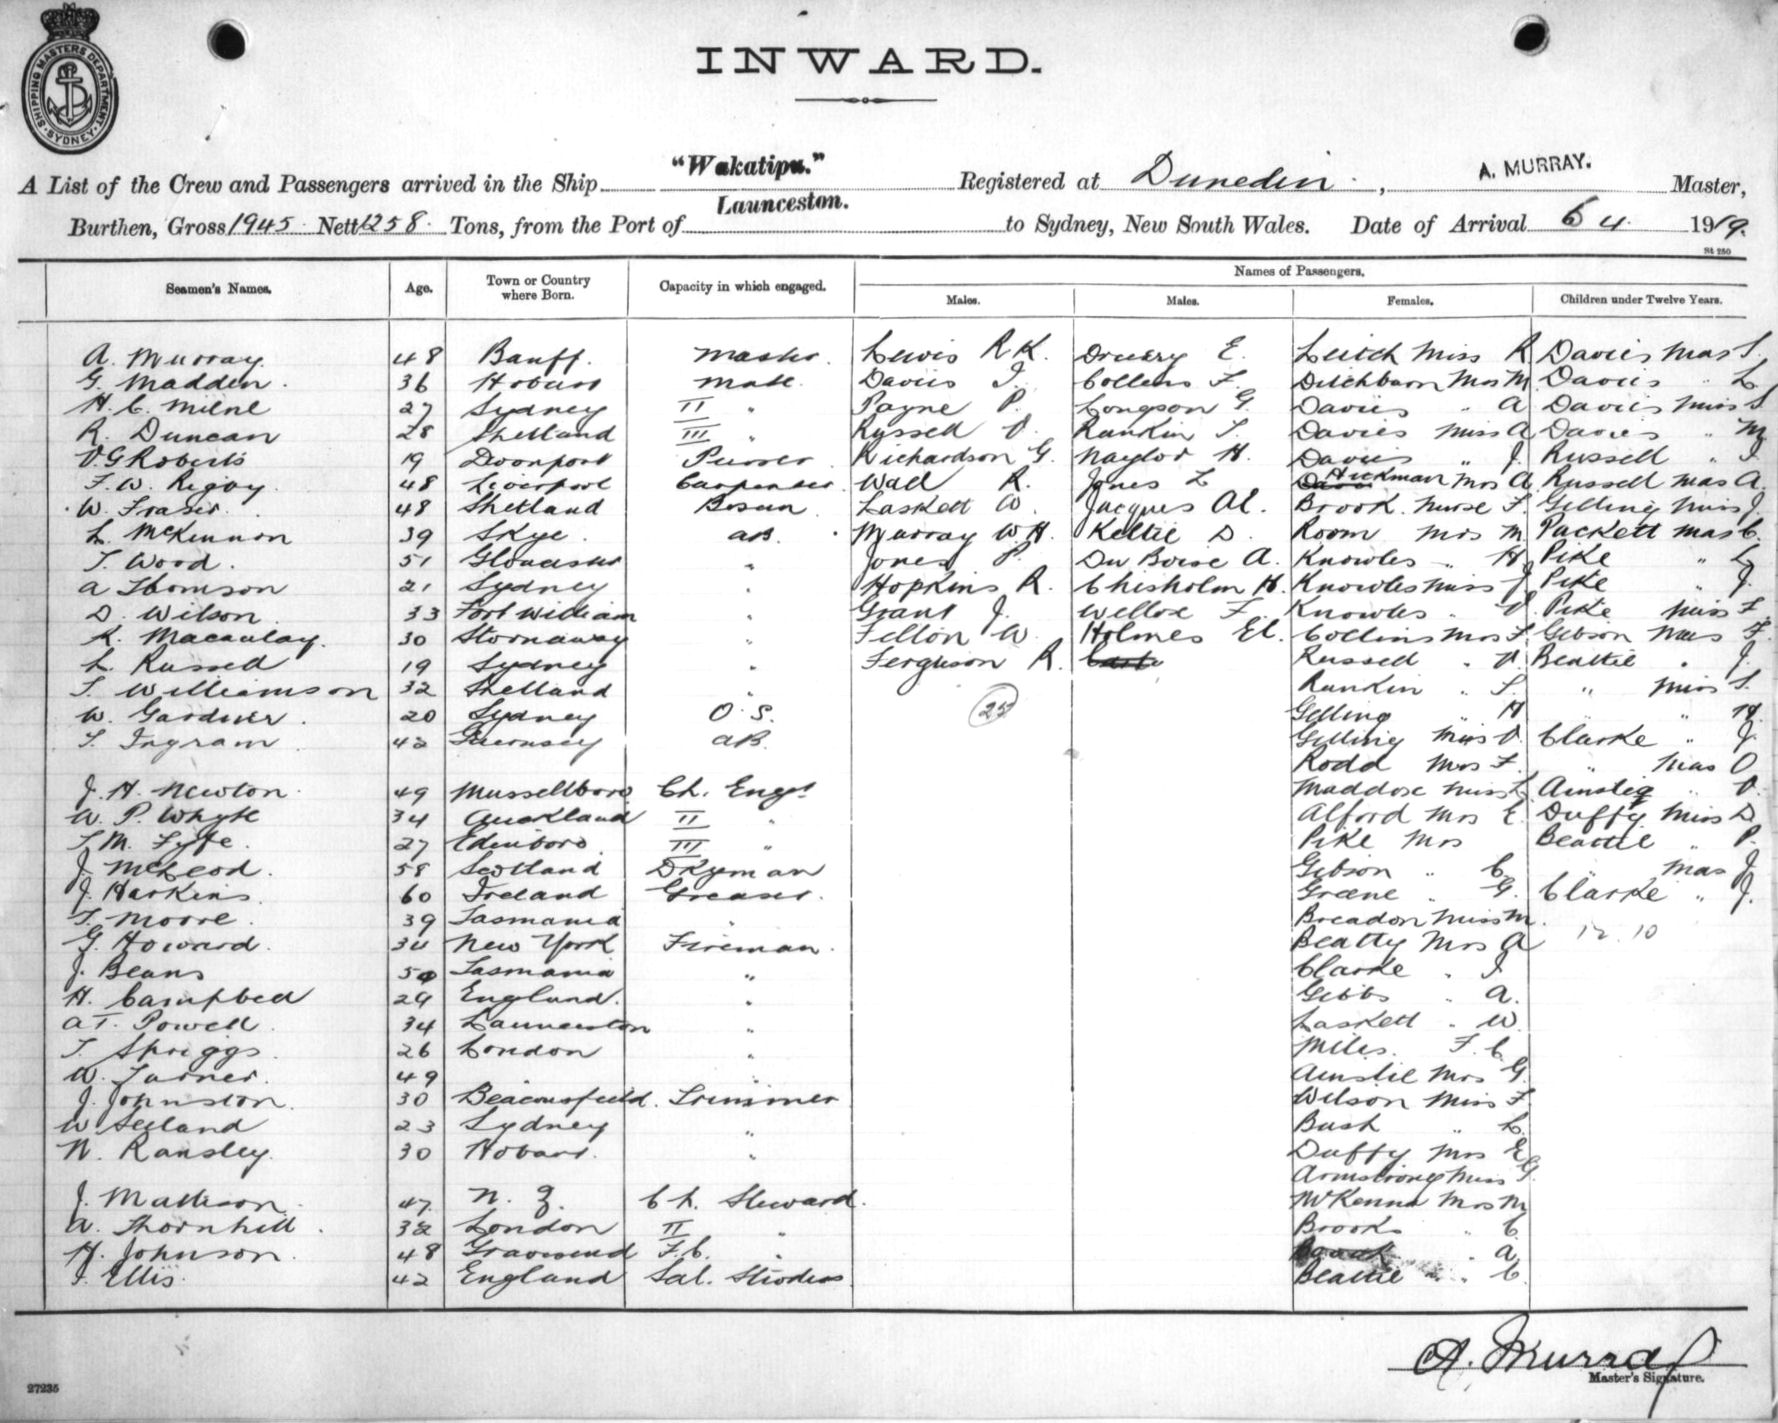 SHIPPING MASTERS DEPARTMENT SYDNEY
INWARD.
A List of the Crew and Passengers arrived in the Ship "Wakatipu." Registered at Dunedin, A. MURRAY. Master,
Burthen, Gross 1945 Nett 1258 Tons, from the Port of Launceston. to Sydney, New South Wales. Date of Arrival 6 4. 1919.
St 250
Names of Passengers.
Seamen's Names. Age. Town or Country where Born. Capacity in which engaged. Males. Males. Females. Children under Twelve Years.
A. Murray 48 Banff. Master. Lewis R K. Druery E. Leitch Miss R Davies Mas T.
G. Madden. 36 Hobart Mate. Davies J. Collens F. Ditchburn Mrs M. Davies " L.
H. C. Milne 27 Sydney II " Payne P. Congson G. Davies " A Davies Miss S
R. Duncan 28 Shetland III " Russell V. Rankin T. Davies Miss A Davies " M
V. G Roberts 19 Devonport Purser Richardson G. Naylor H. Davies " J. Russell " I
F. W. Rigby. 48 Liverpool Carpenter Wall R. Jones L Hickman Mrs A Russell Mas A.
W. Fraser. 48 Shetland Bosun Laskett W. Jacques Al. Brook. Nurse F. Gelling Miss J.
L. McKinnon 39 Skye. AB. Murray W. H. Kellie D. Room Mrs M Packett Mas C.
T. Wood. 51 Gloucester " Jones P. Du Boise A. Knowles " H Pike " L
A Thomson 21 Sydney " Hopkins R. Chisholm H. Knowles Miss J Pike " J.
D. Wilson 33 Fort William " Grant J. Willox F. Knowles " V. Pike Miss F.
K. Macaulay. 30 Stornaway " Fellon W. Holmes El. Collins Mrs F. Gibson Mas F.
L. Russell 19 Sydney " Ferguson R. Russell " V Beattie " J.
T. Williamson 32 Shetland " Rankin " S. " Miss S.
W. Gardner. 20 Sydney O. S. 25 Gelling " H " " H.
T. Ingram 42 Guernsey AB. Gelling Miss V. Clarke " J.
Rodd Mrs F. " Mas O
J. H. Newton. 49 Mussellboro Ch. Engr Maddox Miss L Ainslie " V.
W. P. Whyte 34 Auckland II " Alford Mrs E. Duffy Miss D
T. M. Fyfe. 27 Edinboro. III " Pike Mrs Beattie " P.
J. McLeod. 58 Scotland Dkyman Gibson " C. " Mas J
J. Harkins 60 Ireland Greaser. Greene " G. Clarke " J.
T. Moore. 39 Tasmania " Breadon Miss M.
G. Howard. 34 New York Fireman. Beatty Mrs A 12. 10
J. Beans 50 Tasmania " Clarke " I
H. Campbell 29 England. " Gibbs " A.
A T. Powell. 34 Launceston " Laskett " W.
T. Spriggs 26 London " Miles. F. C.
W. Turner. 49 " Ainslie Mrs G.
J. Johnston. 30 Beaconsfield. Trimmer Wilson Miss F.
W Sealand 23 Sydney " Bush " L.
N. Ransley. 30 Hobart. " Duffy Mrs E
Armstrong Miss G.
J. Mattison. 47 N. Z. Ch. Steward. McKenna Mrs M
A. Thornhill. 32 London II " Brooks " C.
H. Johnson. 48 Gravesend F. C. " " A
I. Ellis. 42 England Sal. Stwdess Beattie " C.
A. Murray
Master's Signature.
27235